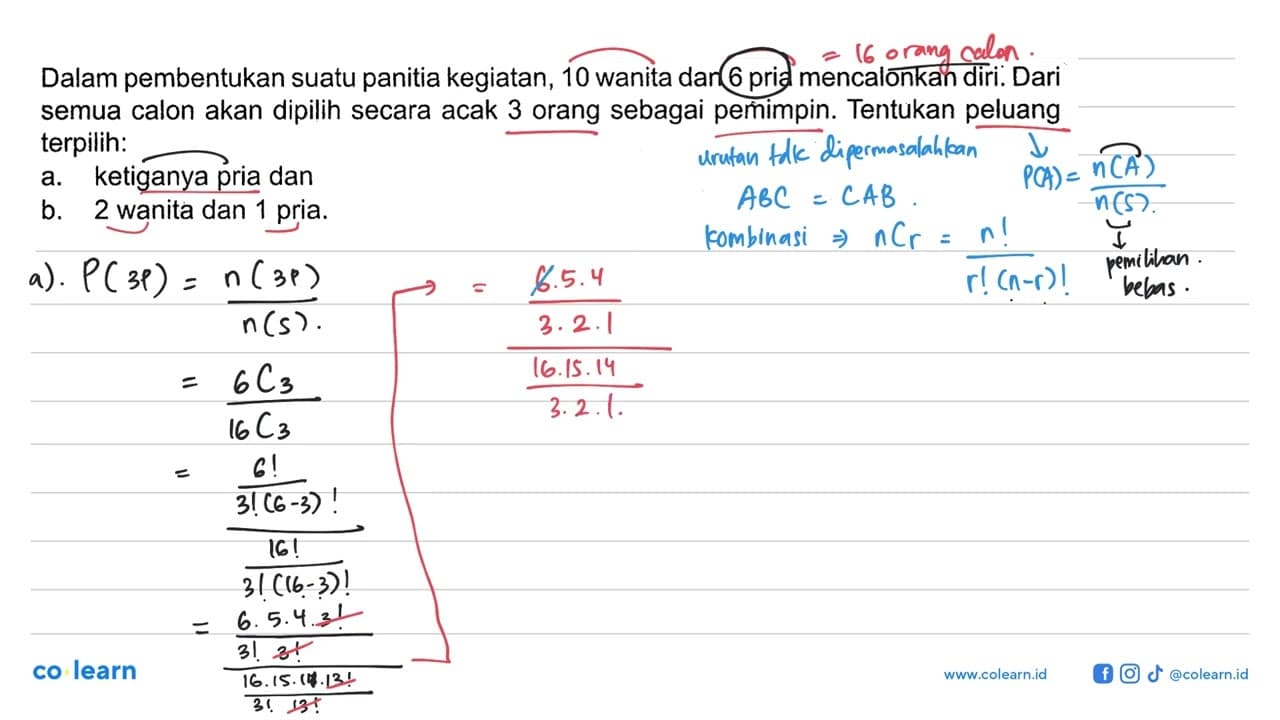 = 16 orang calon.
Dalam pembentukan suatu panitia kegiatan, 10 wanita dan 6 pria mencalonkan diri. Dari
semua calon akan dipilih secara acak 3 orang sebagai pemimpin. Tentukan peluang
terpilih:
a. ketiganya pria dan
b. 2 wanita dan 1 pria.
urutan tdk dipermasalahkan
ABC = CAB.
kombinasi ⇒ nCr = n!
r! (n-r)!
↓
P(A) = n(A)
n(S).
↓
pemilihan.
bebas.
a). P(3P) = n(3P)
n(S).
= 6C3
16C3
= 6!
3!(6-3)!
16!
3!(16-3)!
= 6.5.4.3!
3! 3!
16.15.14.13!
3! 13!
→ = 6.5.4
3.2.1
16.15.14
3.2.1.
co learn
www.colearn.id
@colearn.id